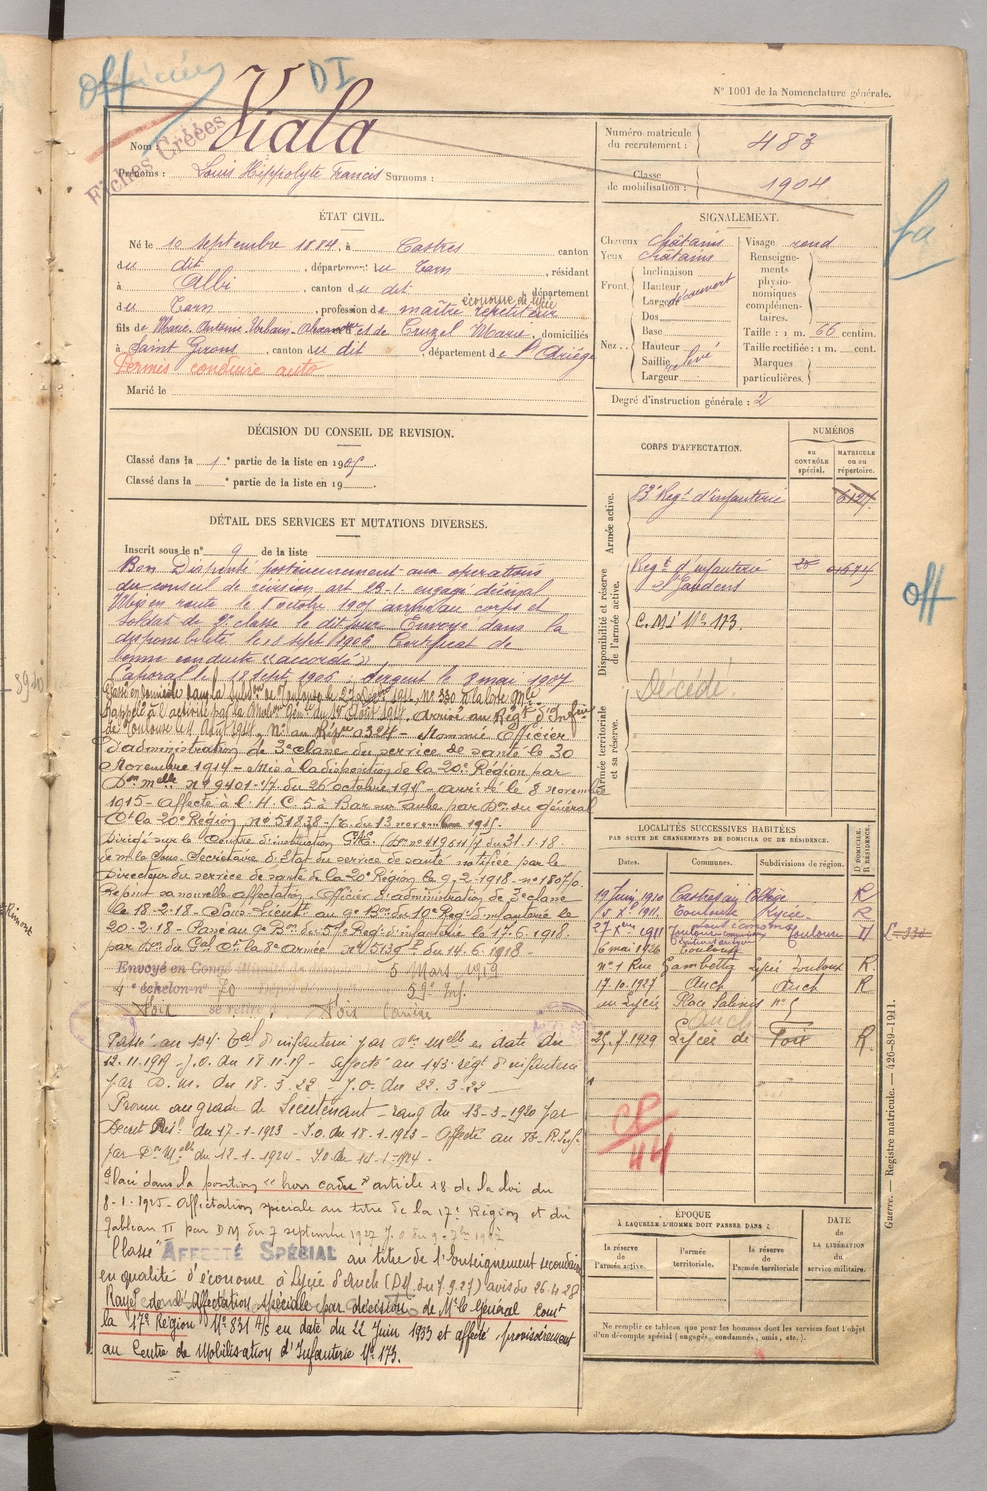 Officier
DI
N° 1001 de la Nomenclature générale.
Fiches Créées
Nom : Viala
Prénoms : Louis Hippolyte Francis Surnoms :
Numéro matricule du recrutement : 483
Classe de mobilisation : 1904
ÉTAT CIVIL.
Né le 10 septembre 1884, à Castres canton
du dit, département du Tarn, résidant
à Albi, canton du dit, département
économe de lycée
du Tarn, profession de maître répétiteur
fils de Marie Antoine Urbain et de Cruzel Marie, domiciliés
à Saint Girons, canton du dit, département de l'Ariège
Permis conduire auto
Marié le
SIGNALEMENT.
Cheveux châtains
Yeux châtains
Front. Inclinaison
Hauteur
Largeur
découvert
Nez. Dos
Base
Hauteur
Saillie
Largeur
relevé
Visage rond
Renseignements physionomiques complémentaires.
Taille : 1 m. 66 centim.
Taille rectifiée : 1 m. cent.
Marques particulières.
Degré d'instruction générale : 2
fa
DÉCISION DU CONSEIL DE REVISION.
Classé dans la 1e partie de la liste en 1905.
Classé dans la e partie de la liste en 19
DÉTAIL DES SERVICES ET MUTATIONS DIVERSES.
Inscrit sous le n° 9 de la liste
Bon Dispensé postérieurement aux opérations
du conseil de révision art 23-1 engag décennal
Mis en route le 8 octobre 1905 arrivé au corps et
soldat de 2e classe le dit jour Envoyé dans la
disponibilité le 18 sept 1906 Certificat de
bonne conduite "accordé"
Caporal le 18 sept 1906, Sergent le 8 mai 1907
Passé en domicile dans la Subdon de Toulouse le 27 Décre 1911, No 330 à la liste Gnle
Rappelé à l'activité par la Mobon Génle du 1er Août 1914. Arrivé au Régt d'Infrie
de Toulouse le Août 1914, No au Répre 0324 - Nommé Officier
d'administration de 3e classe du service de santé le 30
Novembre 1914 - Mis à la disposition de la 20e Région par
Don melle No 9401-1/7 du 26 octobre 1915 - arrivé le 8 novembre
1915 - affecté à l'H.C. 5 à Bar sur Aube par Don du général
Ct la 20e Région, no 51838-/7. du 13 novembre 1915.
Dirigé sur le Centre d'instruction (Don no 41951 1/7 du 31.1.18.
de mr le Sous-Secrétaire d'Etat du service de santé notifiée par le
Directeur du service de santé de la 20e Région le 9.2.1918 - no 1807/o.
Rejoint sa nouvelle affectation, Officier d'administration de 3e classe
le 18-2-18 - Sous-Lieutt au 9e Bon du 10e Regt d'infanterie le
20-2-18 - Passé au 9e Bon du 59e Regt d'infanterie le 17.6.1918
par Don du Gal Ct la 8e Armée No 5139 du 14.6.1918 -
Envoyé en Congé illimité de démob 5 Mars 1919
4e échelon no 70 59e Inf.
Foix se retire à Foix
Passé au 134e Tal d'infanterie par Don Melle en date du
12.11.1919 - J.O. du 18.11.19 - affecté au 143e régt d'infanterie
par D.M. du 18-3-22 - J.O. du 22.3.22
Promu au grade de Lieutenant - rang du 13-3-1920 par
Décret du 17-1-1923 - J.O. du 18.1.1923 - Affecté au
par Don Melle du 12-1-1924 - J.O. du 14-1-1924 -
Placé dans la position "hors cadre" article 28 de la loi du
8-1-1925 - Affectation spéciale au titre de la 17e Région et du
Tableau II par DM du 7 septembre 1927 J.O. du 9-7bre 1927
Classé "AFFECTÉ SPÉCIAL" au titre de l'Enseignement secondaire
en qualité d'économe à Lycée d'Auch (DM du 7.9.27) avis du 26.4.28
Rayé de l'Affectation spéciale par décision de Mr le Général Comt
la 17e Région No 831 A/S en date du 22 Juin 1933 et affecté provisoirement
au Centre de Mobilisation d'Infanterie No 173.
CORPS D'AFFECTATION.
NUMÉROS
au CONTRÔLE spécial.
MATRICULE ou au répertoire.
Armée active.
83e Regt d'infanterie 6127
Disponibilité et réserve de l'armée active.
Regt d'infanterie St Gaudens
C.M.I. No 173.
Armée territoriale et sa réserve.
Décédé.
off
LOCALITÉS SUCCESSIVES HABITÉES
PAR SUITE DE CHANGEMENTS DE DOMICILE OU DE RÉSIDENCE.
Dates. Communes. Subdivisions de région. D. DOMICILE. R. RÉSIDENCE.
19 Juin 1910 Castres au Collège R
5 Xe 1911 Toulouse Lycée R
27 Xbre 1911 Toulouse Toulouse D L. 330
6 mai 1926 Toulouse
no 1 Rue Gambetta Lycée Toulouse R
17.10.1927 Auch Auch R
au Lycée Place Salinis no 5
Auch
25.7.1929 Lycée de Foix R.
CP/44
ÉPOQUE
À LAQUELLE L'HOMME DOIT PASSER DANS :
la réserve de l'armée active.
l'armée territoriale.
la réserve de l'armée territoriale
DATE DE LA LIBÉRATION du service militaire.
Ne remplir ce tableau que pour les hommes dont les services font l'objet
d'un décompte spécial (engagés, condamnés, omis, etc.).
Guerre. — Registre matricule. — 426-89-1911.